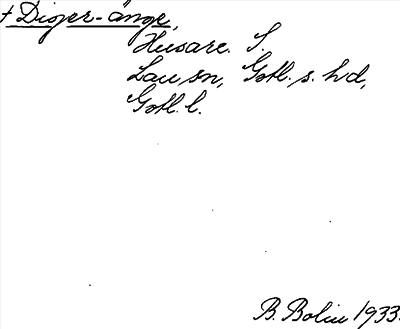 † Digeränge,
Husare. S.
Lau sn, Gotl. s. hd,
Gotl. l.
B. Bolin 1933.